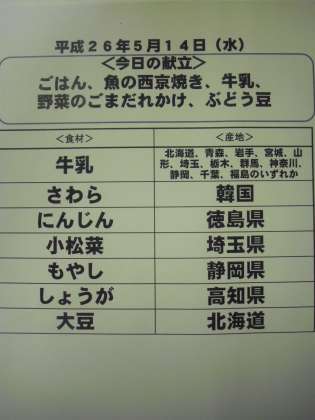 平成26年5月14日（水）
＜今日の献立＞
ごはん、魚の西京焼き、牛乳、
野菜のごまだれかけ、ぶどう豆
＜食材＞ ＜産地＞
牛乳 北海道、青森、岩手、宮城、山
形、埼玉、栃木、群馬、神奈川、
静岡、千葉、福島のいずれか
さわら 韓国
にんじん 徳島県
小松菜 埼玉県
もやし 静岡県
しょうが 高知県
大豆 北海道